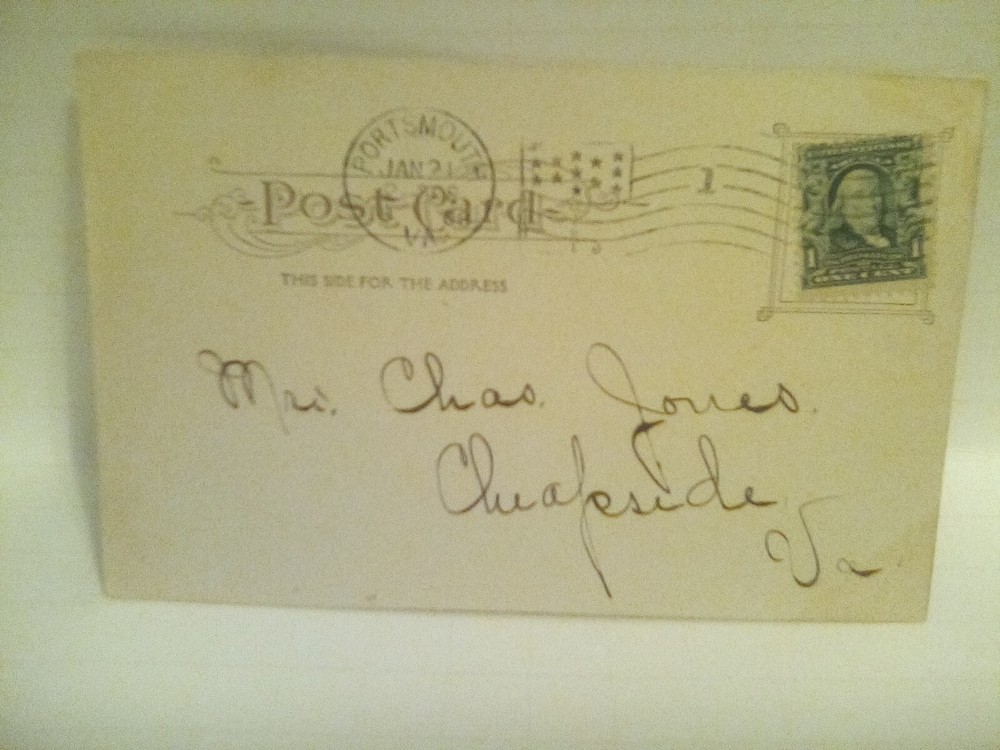 PORTSMOUTH
JAN 21
VA.
1
Post Card
THIS SIDE FOR THE ADDRESS
1 1
ONE CENT
Mrs. Chas. Jones.
Cheapside
Va.